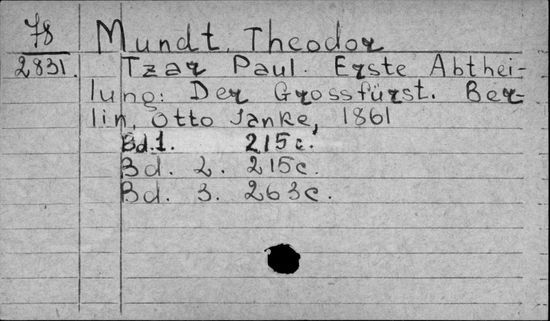 78 Mundt, Theodor
2831. Tzar Paul. Erste Abthei-
lung: Der Grossfürst. Ber-
lin, Otto Janke, 1861
Bd. 1. 215c.
Bd. 2. 215c.
Bd. 3. 263c.